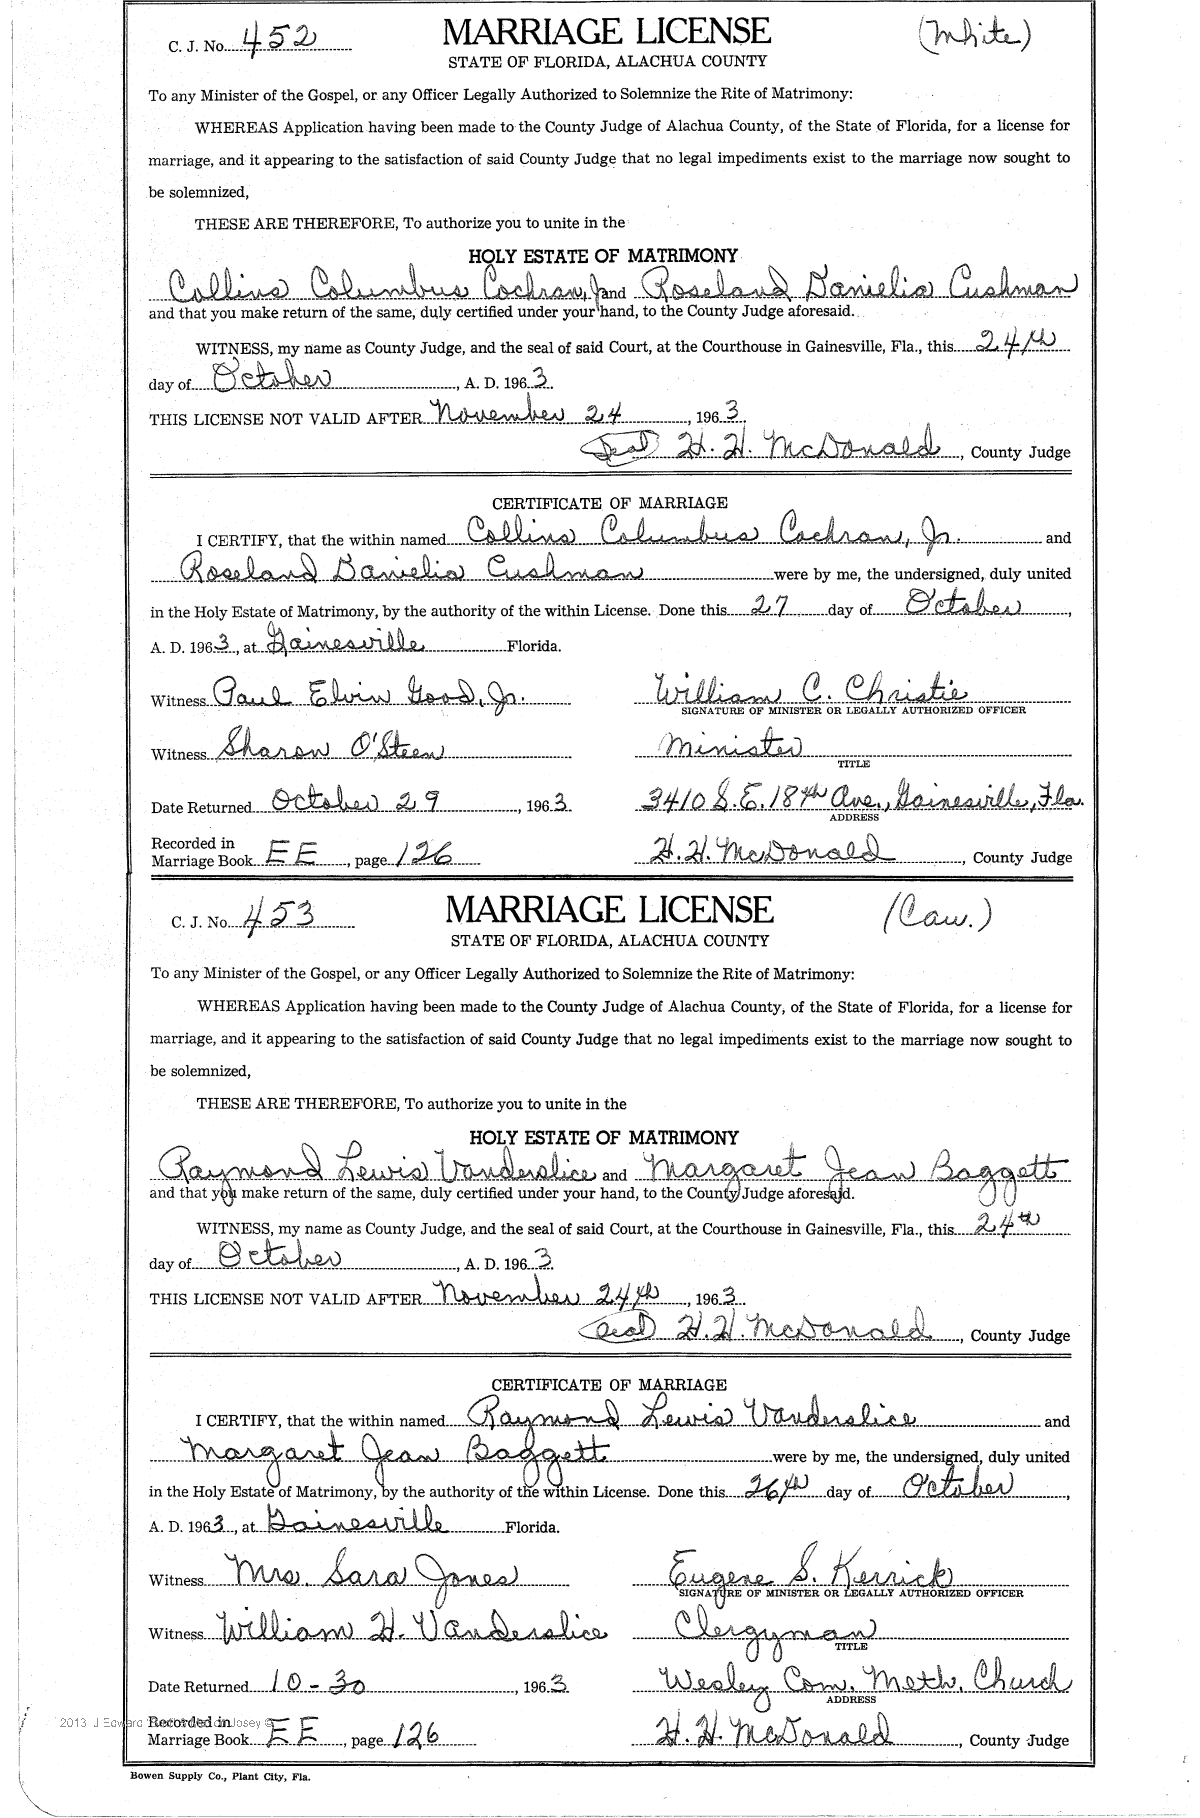 C. J. No. 452 MARRIAGE LICENSE (White)
STATE OF FLORIDA, ALACHUA COUNTY
To any Minister of the Gospel, or any Officer Legally Authorized to Solemnize the Rite of Matrimony:
WHEREAS Application having been made to the County Judge of Alachua County, of the State of Florida, for a license for
marriage, and it appearing to the satisfaction of said County Judge that no legal impediments exist to the marriage now sought to
be solemnized,
THESE ARE THEREFORE, To authorize you to unite in the
HOLY ESTATE OF MATRIMONY
Collins Columbus Cochran, Jr. and Roseland Danielia Cushman
and that you make return of the same, duly certified under your hand, to the County Judge aforesaid.
WITNESS, my name as County Judge, and the seal of said Court, at the Courthouse in Gainesville, Fla., this 24th
day of October, A. D. 1963.
THIS LICENSE NOT VALID AFTER November 24, 1963.
(Seal) H. H. McDonald, County Judge
CERTIFICATE OF MARRIAGE
I CERTIFY, that the within named Collins Columbus Cochran, Jr. and
Roseland Danielia Cushman were by me, the undersigned, duly united
in the Holy Estate of Matrimony, by the authority of the within License. Done this 27 day of October,
A. D. 1963, at Gainesville Florida.
Witness Paul Elvin Good, Jr. William C. Christie
SIGNATURE OF MINISTER OR LEGALLY AUTHORIZED OFFICER
Witness Sharon O'Steen Minister
TITLE
Date Returned October 29, 1963. 3410 S.E. 18th Ave., Gainesville, Fla.
ADDRESS
Recorded in
Marriage Book EE, page 126 H. H. McDonald, County Judge
C. J. No. 453 MARRIAGE LICENSE (Caw.)
STATE OF FLORIDA, ALACHUA COUNTY
To any Minister of the Gospel, or any Officer Legally Authorized to Solemnize the Rite of Matrimony:
WHEREAS Application having been made to the County Judge of Alachua County, of the State of Florida, for a license for
marriage, and it appearing to the satisfaction of said County Judge that no legal impediments exist to the marriage now sought to
be solemnized,
THESE ARE THEREFORE, To authorize you to unite in the
HOLY ESTATE OF MATRIMONY
Raymond Lewis Vanderslice and Margaret Jean Baggett
and that you make return of the same, duly certified under your hand, to the County Judge aforesaid.
WITNESS, my name as County Judge, and the seal of said Court, at the Courthouse in Gainesville, Fla., this 24th
day of October, A. D. 1963.
THIS LICENSE NOT VALID AFTER November 24th, 1963.
(Seal) H. H. McDonald, County Judge
CERTIFICATE OF MARRIAGE
I CERTIFY, that the within named Raymond Lewis Vanderslice and
Margaret Jean Baggett were by me, the undersigned, duly united
in the Holy Estate of Matrimony, by the authority of the within License. Done this 26th day of October,
A. D. 1963, at Gainesville Florida.
Witness Mrs. Sara Jones Eugene S. Kerrick
SIGNATURE OF MINISTER OR LEGALLY AUTHORIZED OFFICER
Witness William H. Vanderslice Clergyman
TITLE
Date Returned 10-30, 1963. Wesley Com. Meth. Church
ADDRESS
2013 J Edward Josey ©
Recorded in
Marriage Book EE, page 126 H. H. McDonald, County Judge
Bowen Supply Co., Plant City, Fla.